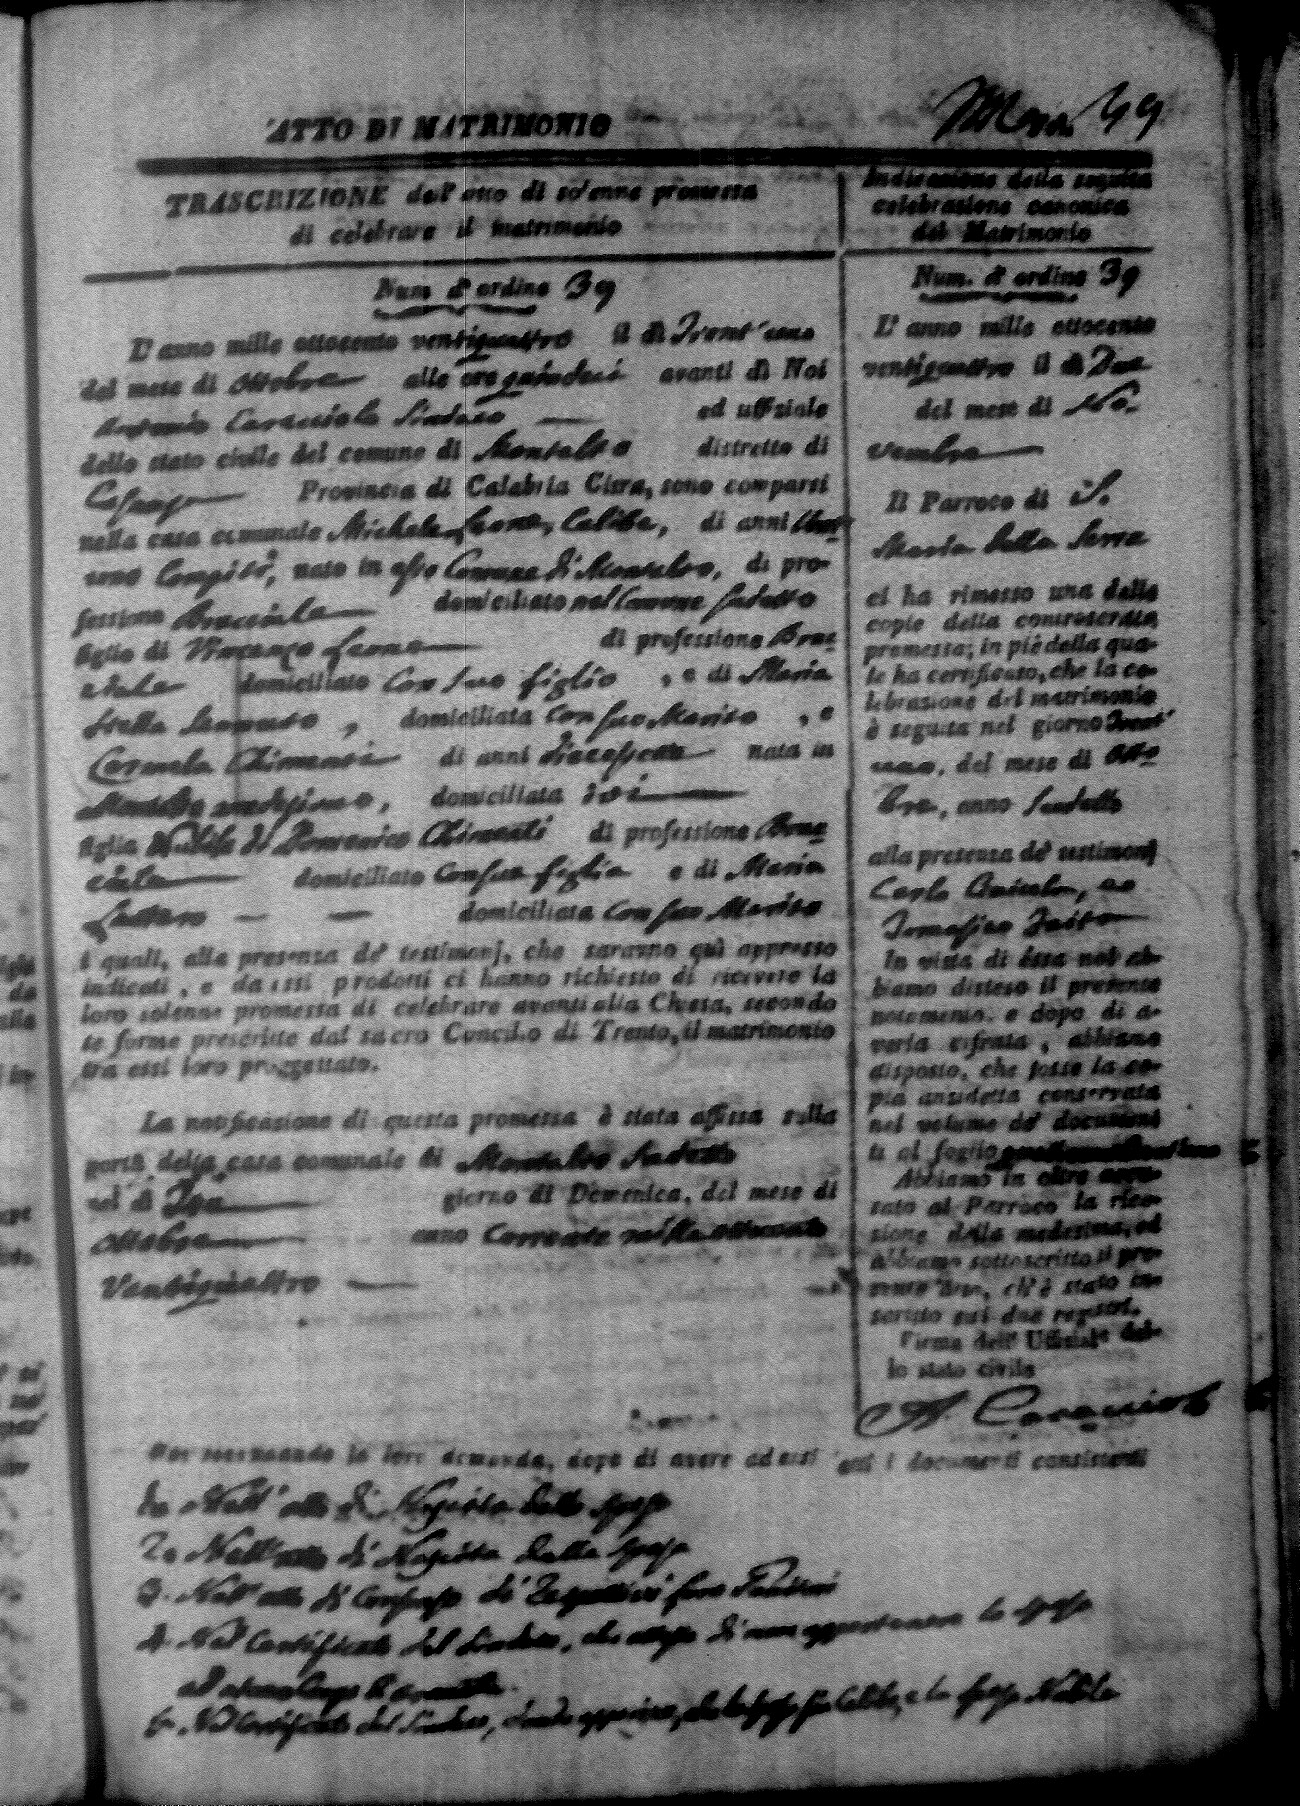 ATTO DI MATRIMONIO
TRASCRIZIONE dell' atto di solenne promessa
di celebrare il matrimonio
Num d' ordine 39
L' anno mille ottocento ventiquattro il di Trent' uno
del mese di Ottobre alle ore quindeci avanti di Noi
Antonio Caracciolo Sindaco ed uffiziale
dello stato civile del comune di Montalto distretto di
Cosenza Provincia di Calabria Citra, sono comparsi
nella casa comunale Michele Celibe, di anni
compiti, nato in Comune di Montalto, di pro-
fessione Bracciale domiciliato nel Comune sudetto
figlio di Vincenzo di professione Brac
ciale domiciliato con suo figlio , e di Maria
Stella domiciliata con suo Marito , e
Carmela Chimenti di anni diecesette nata in
domiciliata ivi
figlia Nubile di Domenico Chimenti di professione Brac
ciale domiciliato con sua figlia e di Maria
domiciliata con suo Marito
i quali, alla presenza de' testimonj, che saranno quì appresso
indicati, e da essi prodotti ci hanno richiesto di ricevere la
loro solenne promessa di celebrare avanti alla Chiesa, secondo
le forme prescritte dal sacro Concilio di Trento, il matrimonio
tra essi loro proggettato.
La notificazione di questa promessa è stata affissa sulla
porta della casa comunale di Montalto sudetto
nel di giorno di Domenica, del mese di
Ottobre anno Corrente mille ottocento
Ventiquattro
Indicazione della seguita
celebrazione canonica
del Matrimonio
Num. d' ordine 39
L' anno mille ottocento
ventiquattro il di Due
del mese di No-
vembre
Il Parroco di S.
Maria della Serra
ci ha rimesso una delle
copie della controscritta
promessa; in piè della qua-
le ha certificato, che la ce-
lebrazione del matrimonio
è seguita nel giorno Trent'
uno, del mese di Otto
bre, anno sudetto
alla presenza de' testimonj
Carlo ed
Tomaso
In vista di essa noi ab-
biamo disteso il presente
notamento. e dopo di a-
verla cifrata, abbiamo
disposto, che fosse la co-
pia anzidetta conservata
nel volume de' documen
ti al foglio
Abbiamo in oltre accu-
sato al Parroco la rice-
zione della medesima, ed
abbiamo sottoscritto il pre-
sente atto, ch' è stato in-
scritto sui due registri.
Firma dell' Uffiziale del-
lo stato civile
A. Caracciolo
Noi secondando la loro domanda, dopo di avere ad essi i documenti consistenti
1. Nell' atto di Nascita dello sposo
2. Nell' atto di Nascita della sposa
3. Nell' atto di
4. Nel Certificato del Sindaco, che di non appartenere lo sposo
5. Nel Certificato del Sindaco, che lo sposo sia Celibe, e la sposa Nubile